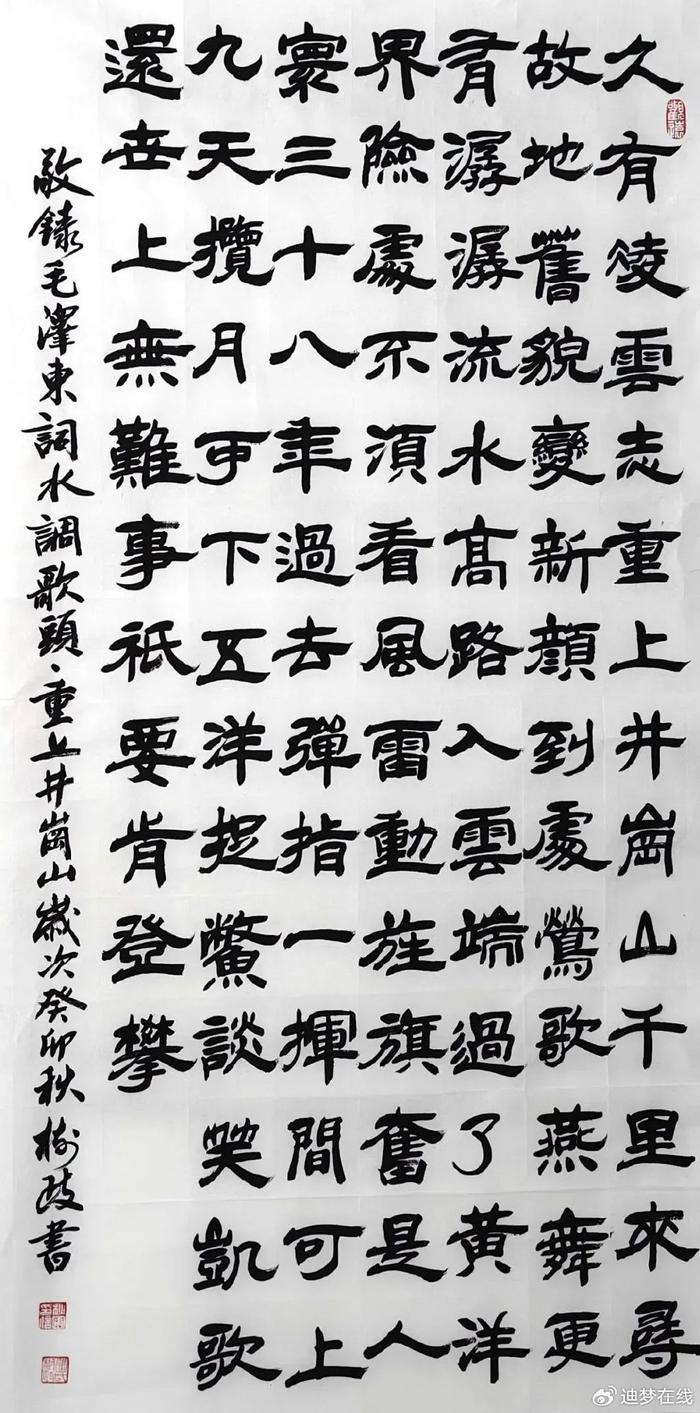 久有凌雲志重上井崗山千里來尋
故地舊貌變新顔到處鶯歌燕舞更
有潺潺流水高路入雲端過了黄洋
界險處不須看風雷動旌旗奮是人
寰三十八年過去彈指一揮間可上
九天攬月可下五洋捉鱉談笑凱歌
還世上無難事祇要肯登攀
敬錄毛澤東詞水調歌頭·重上井崗山歲次癸卯秋樹書
迪梦在线